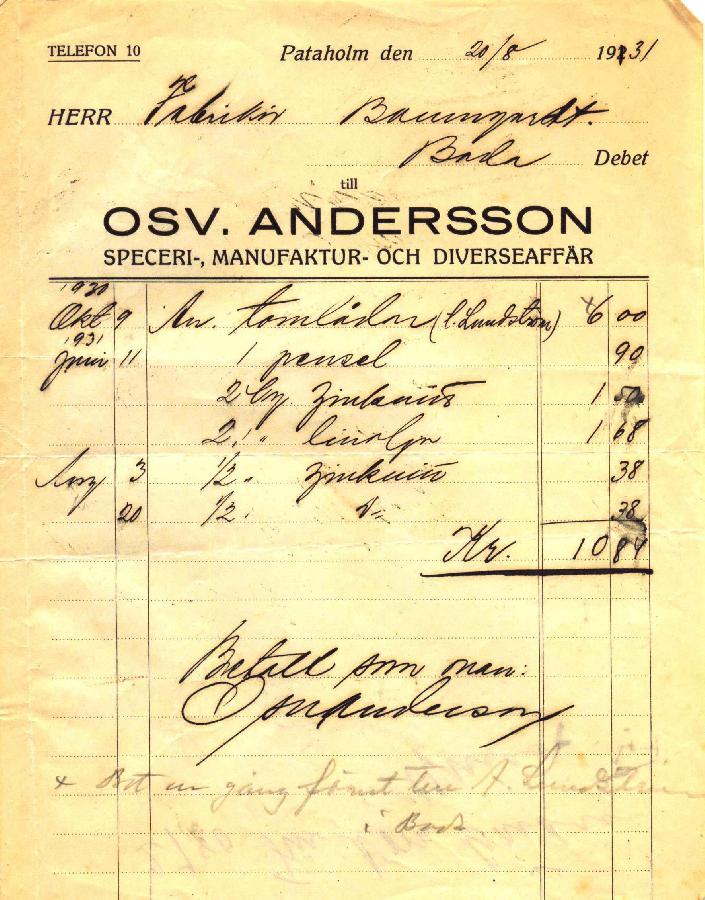 TELEFON 10 Pataholm den 20/8 1931
HERR Fabrikör Baumgardt.
Boda Debet
till
OSV. ANDERSSON
SPECERI-, MANUFAKTUR- OCH DIVERSEAFFÄR
1930
Okt 9 An. tomlådor (C. Lundström) 6 00
1931
Juni 11 1 pensel 90
2 kg zinkvitt 1 50
2 " linolja 1 68
Aug 3 1/2 " zinkvitt 38
20 1/2 " D:o 38
Kr. 10 84
Betalt som ovan:
Osv Anderson
x Bet en gång förut till A. Lundström
i Boda